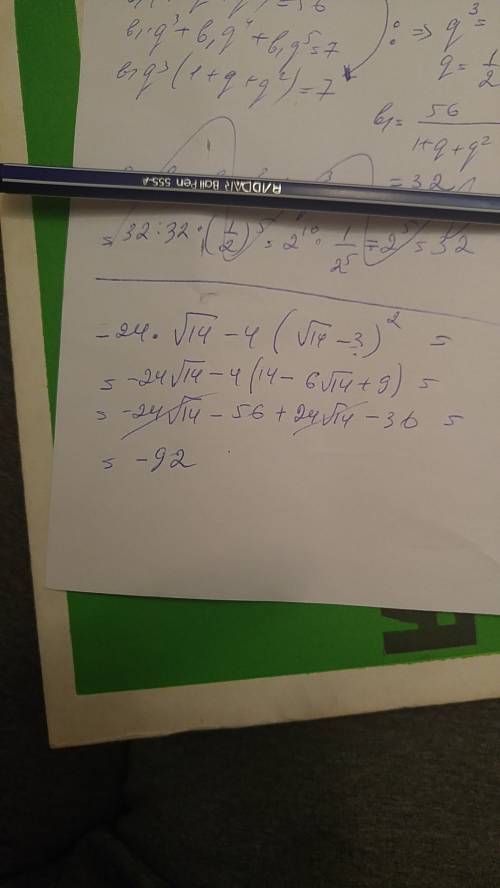 = 56
b₁q³ + b₁q⁴ + b₁q⁵ = 7
b₁q³ (1 + q + q²) = 7
: => q³ =
q = 1/2
b₁ = 56/(1+q+q²)
= 32
RADAR Ball Pen 555-A
= 32 : 32 · (1/2)⁵ = 2¹⁰ · 1/2⁵ = 2⁵ = 32
-24 · √14 - 4 (√14 - 3)² =
= -24√14 - 4 (14 - 6√14 + 9) =
= -24√14 - 56 + 24√14 - 36 =
= -92